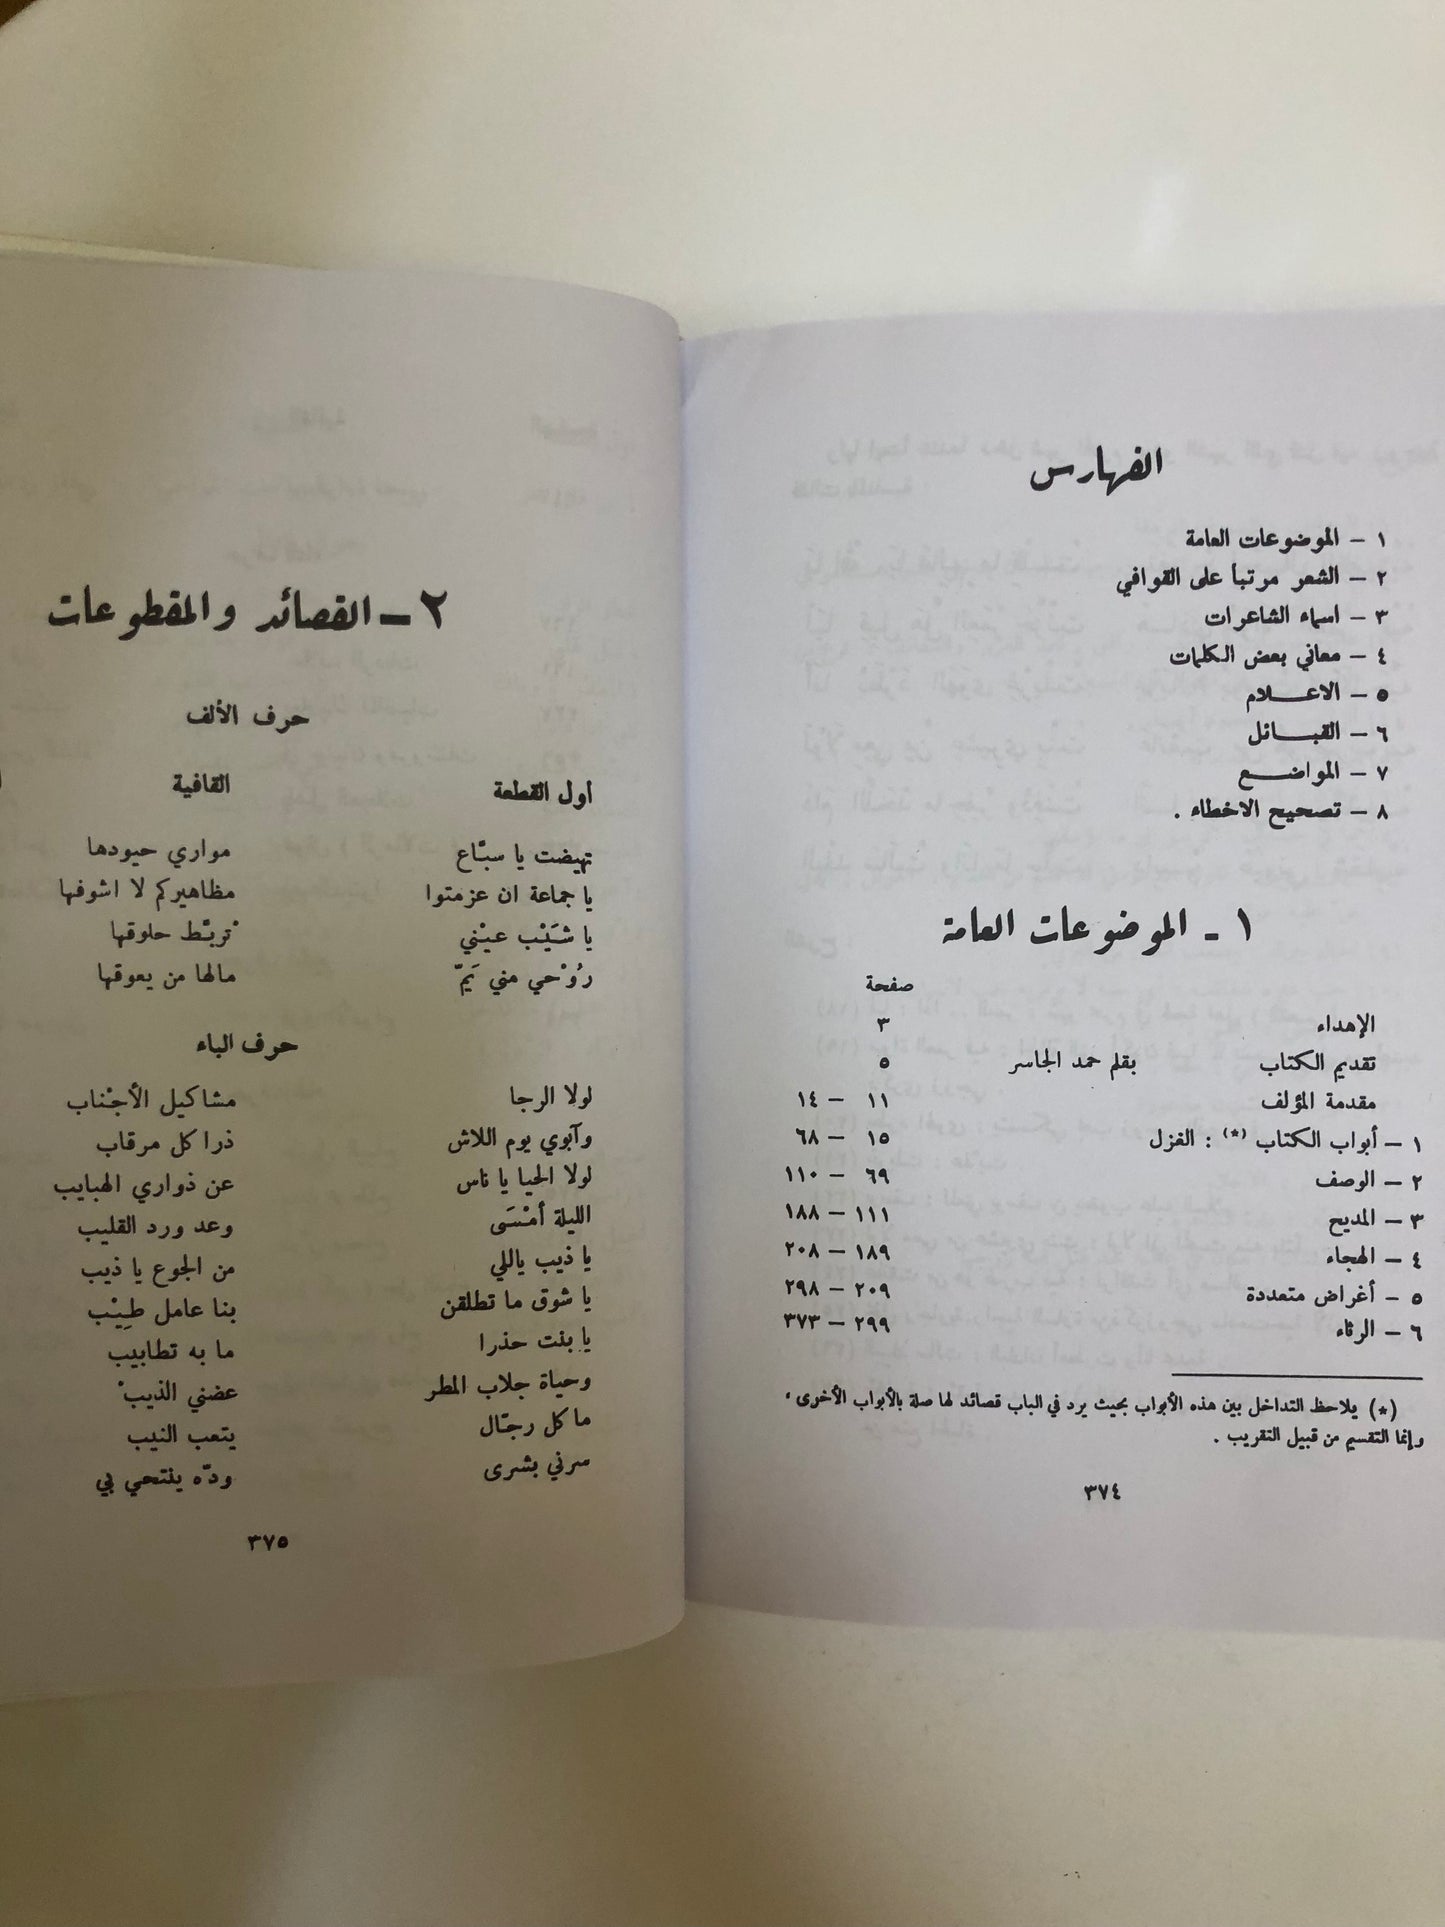 الفهارس
١ – الموضوعات العامة
٢ – الشعر مرتباً على القوافي
٣ – اسماء الشاعرات
٤ – معاني بعض الكلمات
٥ – الاعـــلام
٦ – القبــائل
٧ – المواضــع
٨ – تصحيح الاخطاء .
١ - الموضوعات العامة
صفحة
الإهداء ٣
تقديم الكتاب بقلم حمد الجاسر ٥
مقدمة المؤلف ١١ – ١٤
١ – أبواب الكتاب (*) : الغزل ١٥ – ٦٨
٢ – الوصف ٦٩ – ١١٠
٣ – المديح ١١١ – ١٨٨
٤ – الهجاء ١٨٩ – ٢٠٨
٥ – أغراض متعددة ٢٠٩ – ٢٩٨
٦ – الرثاء ٢٩٩ – ٣٧٣
(*) يلاحظ التداخل بين هذه الأبواب بحيث يرد في الباب قصائد لها صلة بالأبواب الأخرى ،
وإنما التقسيم من قبيل التقريب .
٣٧٤
٢ – القصائد والمقطوعات
حرف الألف
أول القطعة القافية
تهيضت يا سبّاع مواري حيودها
يا جماعة ان عزمتوا مظاهيركم لا اشوفها
يا شَيْب عيْني تربّط حلوقها
رُوْحي مني يَمّ مالها من يعوقها
حرف الباء
لولا الرجا مشاكيل الأجْناب
وآبوي يوم اللاش ذرا كل مرقاب
لولا الحيا يا ناس عن ذواري الهبايب
الليلة أمْسَى وعد ورد القليب
يا ذيب ياللي من الجوع يا ذيب
يا شوق ما تطلقن بنا عامل طِيْب
يا بنت حذرا ما به تطابيب
وحياة جلاب المطر عضني الذيبْ
ما كل رجّال يتعب النيب
سرني بشرى ودّه ينتحي بي
٣٧٥